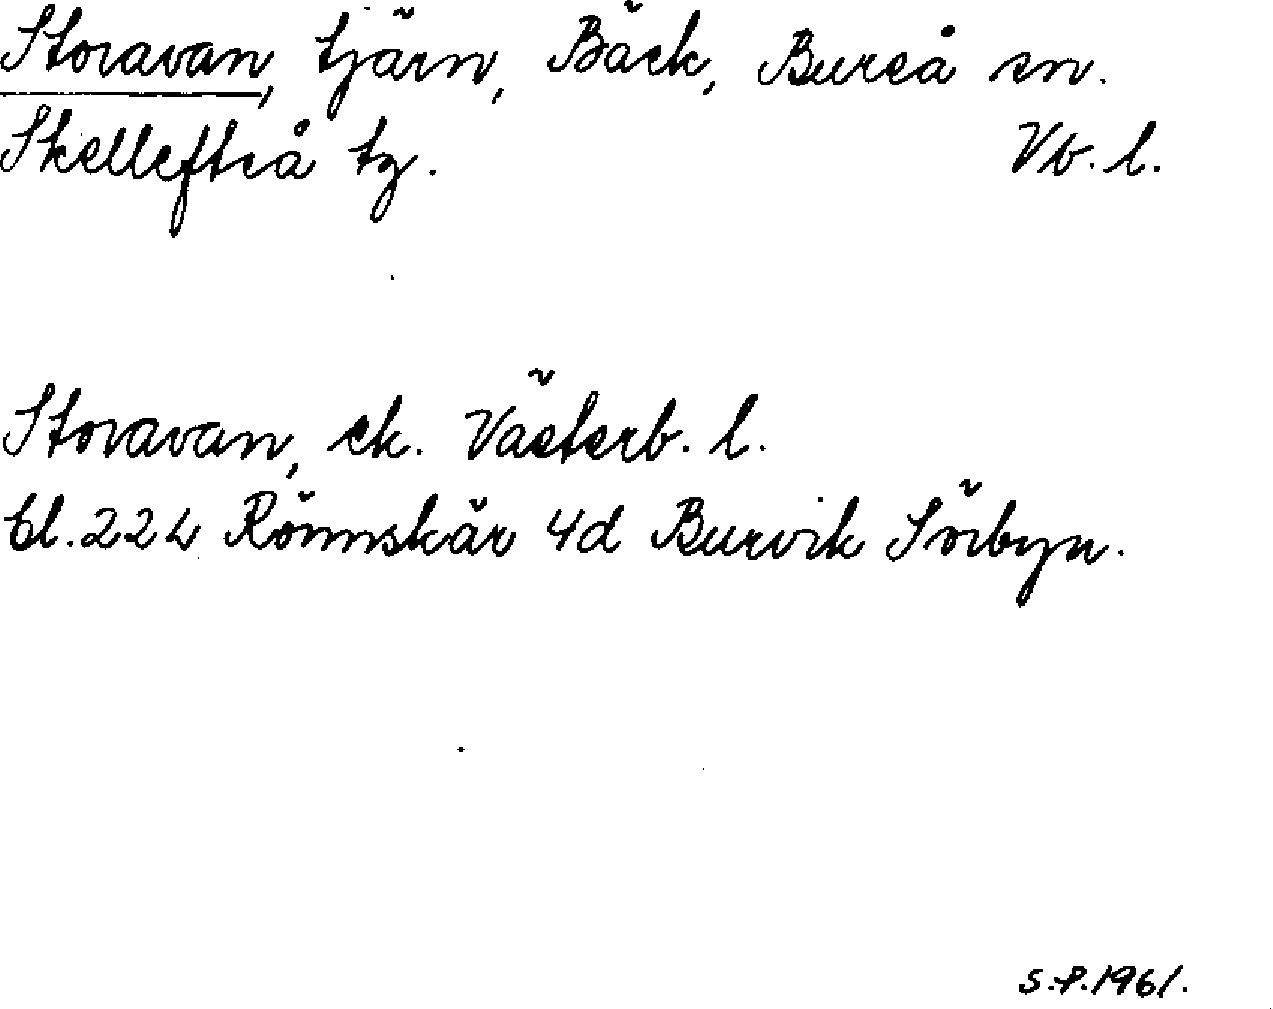 Storavan, tjärn, Bäck, Bureå sn.
Skellefteå tg. Vb. l.
Storavan, ek. Västerb. l.
bl. 22 L Rönnskär 4d Burvik Sörbyn.
S.P. 1961.